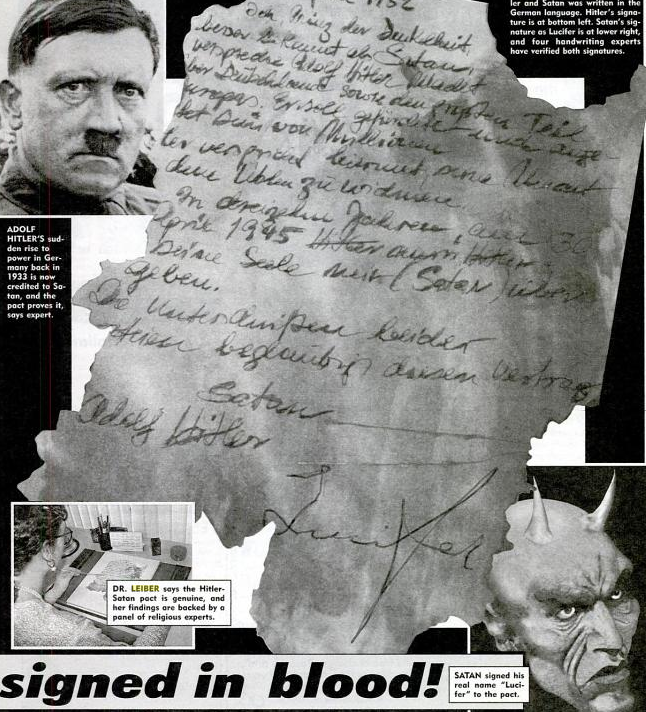 ler and Satan was written in the
German language. Hitler's signa-
ture is at bottom left. Satan's sig-
nature as Lucifer is at lower right,
and four handwriting experts
have verified both signatures.
1932
König der Dunkelheit,
besser bekannt als Satan,
Adolf Hitler Macht
über Deutschland sowie den größten Teil
Europas. Er soll gefürchtet und ange-
sein von Millionen
ter
dem zu widmen
In dreizehn Jahren, am 30
April 1945 Hitler
seine Seele mir (Satan über
geben.
Die Unterschriften beider
diesen Vertrag
Satan
Adolf Hitler
Lucifer
ADOLF
HITLER'S sud-
den rise to
power in Ger-
many back in
1933 is now
credited to Sa-
tan, and the
pact proves it,
says expert.
DR. LEIBER says the Hitler-
Satan pact is genuine, and
her findings are backed by a
panel of religious experts.
signed in blood!
SATAN signed his
real name "Luci-
fer" to the pact.